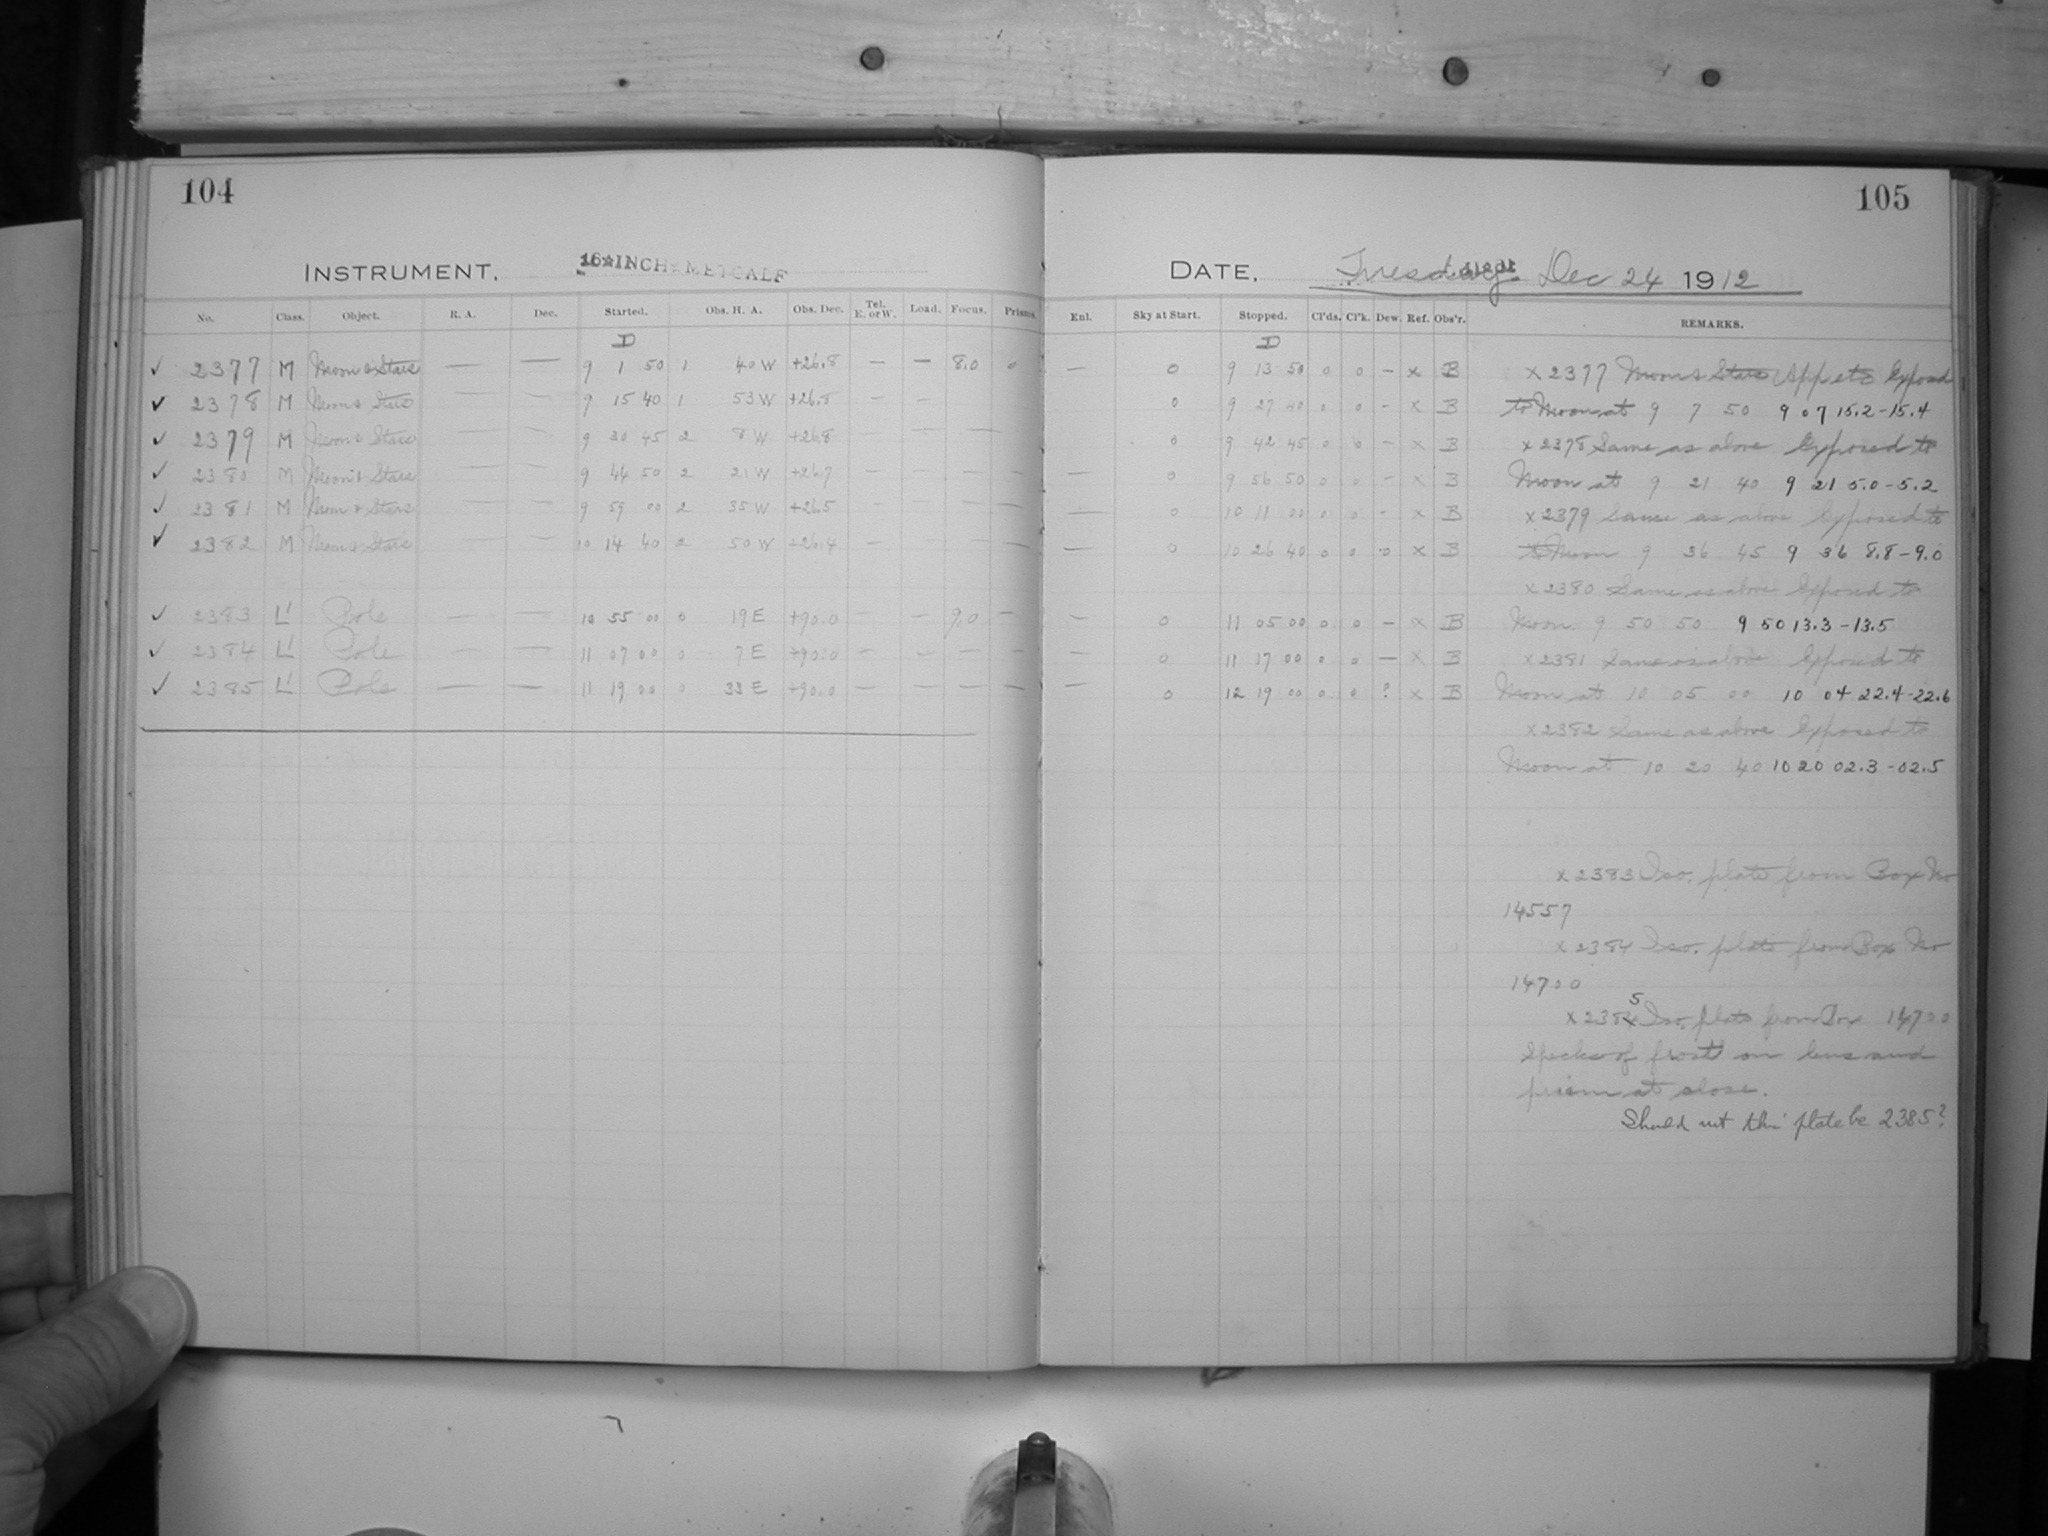 104
INSTRUMENT, 16-INCH METCALF
No. Class. Object. R. A. Dec. Started. Obs. H. A. Obs. Dec. Tel. E. or W. Load. Focus. Prisms.
D
✓ 2377 M Moon & Stars — — 9 1 50 1 40 W +26.8 — — 8.0 0
✓ 2378 M Moon & Stars — — 9 15 40 1 53 W +26.8 — —
✓ 2379 M Moon & Stars — — 9 30 45 2 8 W +26.8 — — — —
✓ 2380 M Moon & Stars — — 9 44 50 2 21 W +26.7 — — — —
✓ 2381 M Moon & Stars — — 9 59 00 2 35 W +26.5 — — — —
✓ 2382 M Moon & Stars — — 10 14 40 2 50 W +26.4 — — — —
✓ 2383 L' Pole — — 10 55 00 0 19 E +90.0 — — 9.0 —
✓ 2384 L' Pole — — 11 07 00 0 7 E +90.0 — — — —
✓ 2385 L' Pole — — 11 19 00 0 33 E +90.0 — — — —
105
DATE, Tuesday Dec 24 1912
Enl. Sky at Start. Stopped. Cl'ds. Cl'k. Dew. Ref. Obs'r. REMARKS.
D
— 0 9 13 50 0 0 — x B
0 9 27 40 0 0 - x B
0 9 42 45 0 0 - x B
— 0 9 56 50 0 0 - x B
— 0 10 11 00 0 0 - x B
— 0 10 26 40 0 0 0 x B
— 0 11 05 00 0 0 — x B
— 0 11 17 00 0 0 — x B
— 0 12 19 00 0 0 ? x B
x 2377 Moon & Stars App etc Exposed
to Moon at 9 7 50 9 07 15.2-15.4
x 2378 Same as above Exposed to
Moon at 9 21 40 9 21 5.0-5.2
x 2379 Same as above Exposed to
to Moon 9 36 45 9 36 8.8-9.0
x 2380 Same as above Exposed to
Moon 9 50 50 9 50 13.3-13.5
x 2381 Same as above Exposed to
Moon at 10 05 00 10 04 22.4-22.6
x 2382 Same as above Exposed to
Moon at 10 20 40 10 20 02.3-02.5
x 2383 Iso. plate from Box No
14557
x 2384 Iso. plate from Box No
14700
5
x 2384 Iso. plate from Box 14700
Specks of frost on lens and
prism at close.
Should not this plate be 2385?